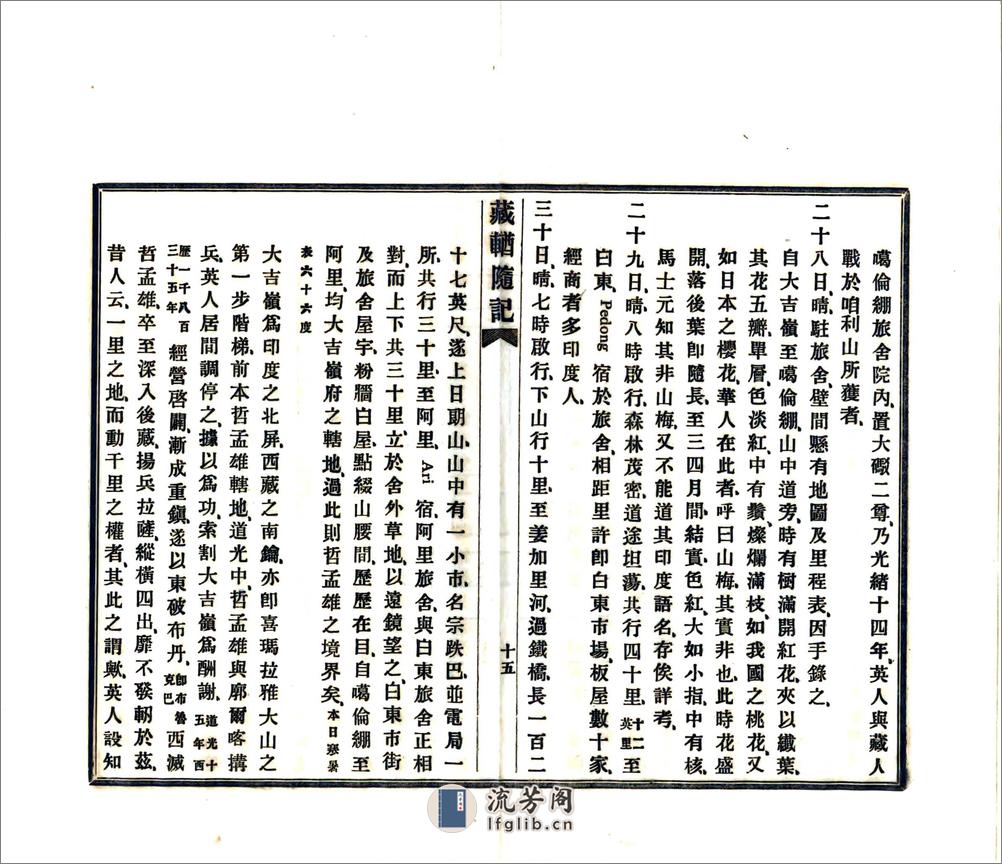 噶倫綳旅舍院內、置大礮二尊、乃光緒十四年、英人與藏人
戰於咱利山所獲者、
二十八日、晴、駐旅舍、壁間懸有地圖及里程表、因手錄之、
自大吉嶺至噶倫綳、山中道旁、時有樹滿開紅花、夾以纖葉、
其花五瓣、單層、色淡紅、中有鬚、燦爛滿枝、如我國之桃花、又
如日本之櫻花、華人在此者、呼曰山梅、其實非也、此時花盛
開、落後葉卽隨長、至三四月間結實、色紅、大如小指、中有核、
馬士元知其非山梅、又不能道其印度語名、存俟詳考、
二十九日、晴、八時啟行、森林茂密、道途坦蕩、共行四十里、十二英里至
白東、Pedong 宿於旅舍、相距里許、卽白東市場、板屋數十家、
經商者多印度人、
三十日、晴、七時啟行、下山行十里、至姜加里河、過鐵橋、長一百二
藏輶隨記
十五
十七英尺、遂上日朗山、山中有一小市、名宗跌巴、並電局一
所、共行三十里、至阿里、Ari 宿阿里旅舍、與白東旅舍正相
對、而上下共三十里、立於舍外草地、以遠鏡望之、白東市街
及旅舍屋宇、粉牆白屋、點綴山腰間、歷歷在目、自噶倫綳至
阿里、均大吉嶺府之轄地、過此則哲孟雄之境界矣、本日寒暑
表六十六度
大吉嶺爲印度之北屏、西藏之南鑰、亦卽喜瑪拉雅大山之
第一步階梯、前本哲孟雄轄地、道光中、哲孟雄與廓爾喀搆
兵、英人居間調停之、據以爲功、索割大吉嶺爲酬謝、道光十五年西
歷一千八百三十五年經營啓闢、漸成重鎮、遂以東破布丹、卽布魯克巴西滅
哲孟雄、卒至深入後藏、揚兵拉薩、縱橫四出、靡不發軔於茲、
昔人云、一里之地、而動千里之權者、其此之謂歟、英人設知
流芳阁
lfglib.cn